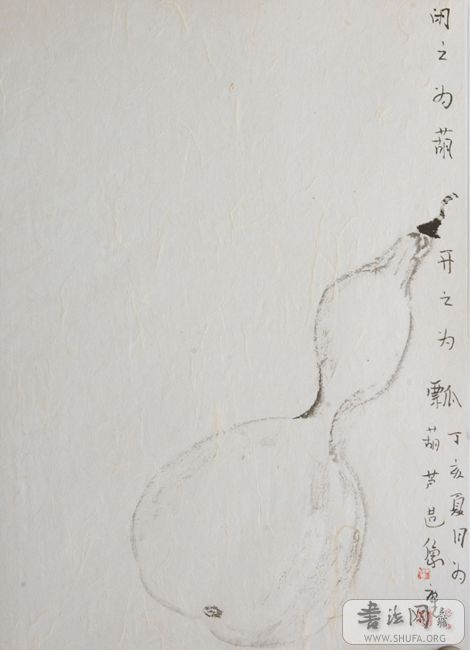 闭之为葫
开之为瓢
丁亥夏月为
葫芦造像
書法网
WWW.SHUFA.ORG